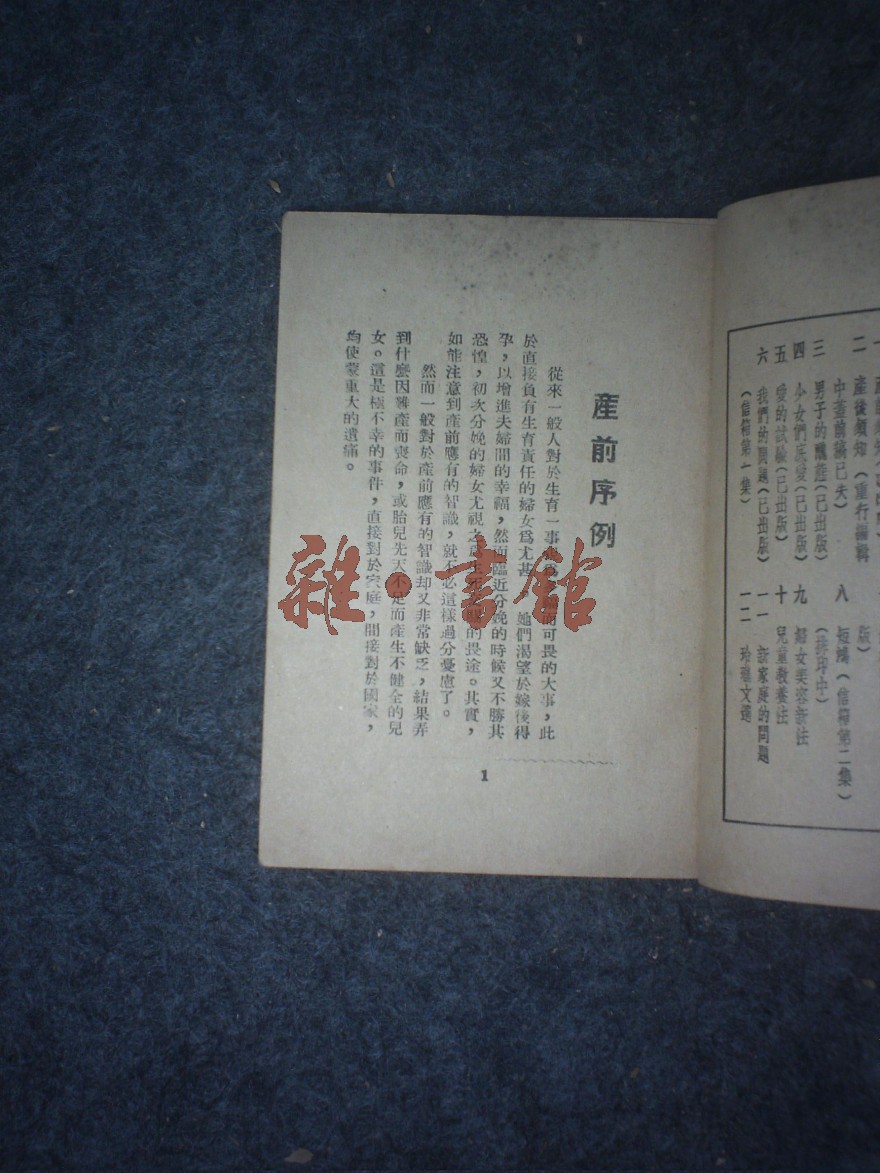 一
二 產後須知(重行編輯
中華前稿已失)
三 男子的醜態(已出版)
四 少女們底愛(已出版)
五 愛的試驗(已出版)
六 我們的問題(已出版)
(信箱第一集)
版)
八 短鴻(信箱第二集)
(排印中)
九 婦女美容新法
十 兒童教養法
一一 新家庭的問題
一二 文選
產前序例
從來一般人對於生育一事 而可畏的大事,此
於直接負有生育責任的婦女爲尤甚 她們渴望於嫁後得
孕,以增進夫婦間的幸福,然而臨近分娩的時候又不勝其
恐惶,初次分娩的婦女尤視之爲生死 的畏途。其實,
如能注意到產前應有的智識,就不必這樣過分憂慮了。
然而一般對於產前應有的智識却又非常缺乏,結果弄
到什麽因難產而喪命,或胎兒先天不足而產生不健全的兒
女。這是極不幸的事件,直接對於家庭,間接對於國家,
均使蒙重大的遺痛。
1
雜·書館